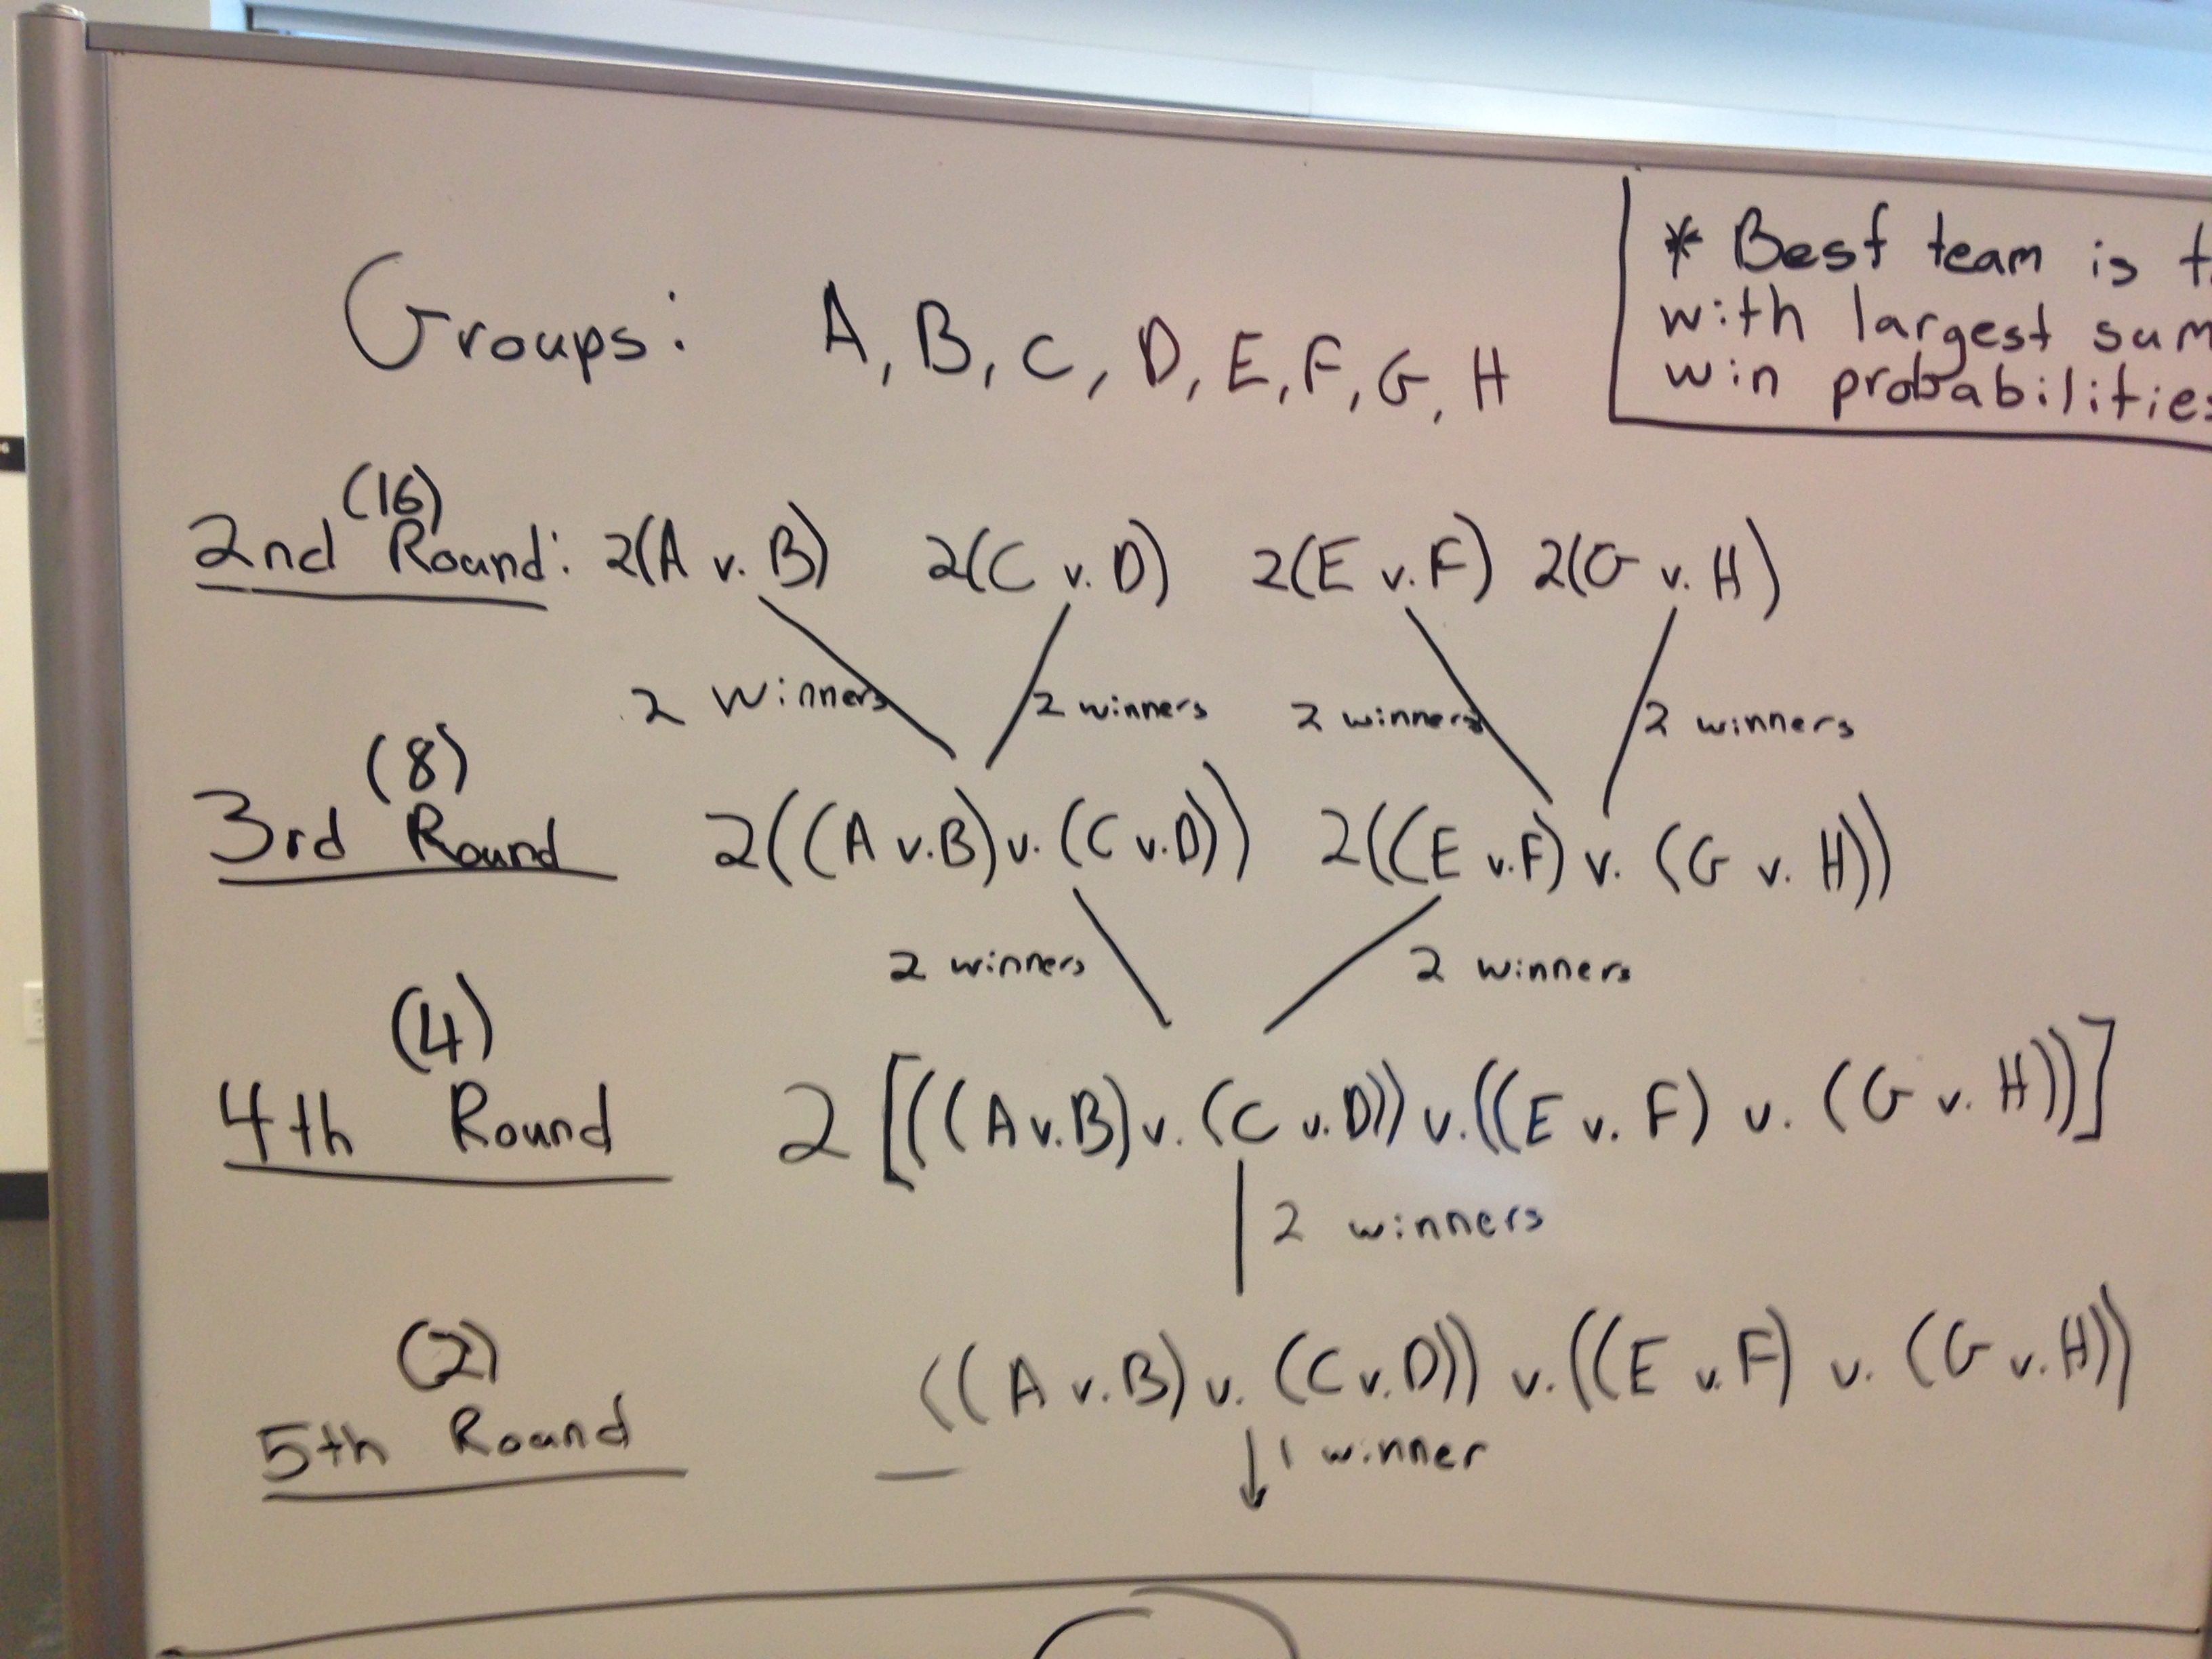 Groups: A, B, C, D, E, F, G, H
* Best team is
with largest sum
win probabilities
(16)
2nd Round: 2(A v. B) 2(C v. D) 2(E v. F) 2(G v. H)
2 winners 2 winners 2 winners 2 winners
(8)
3rd Round 2((A v. B) v. (C v. D)) 2((E v. F) v. (G v. H))
2 winners 2 winners
(4)
4th Round 2[((A v. B) v. (C v. D)) v. ((E v. F) v. (G v. H))]
2 winners
(2)
5th Round ((A v. B) v. (C v. D)) v. ((E v. F) v. (G v. H))
1 winner